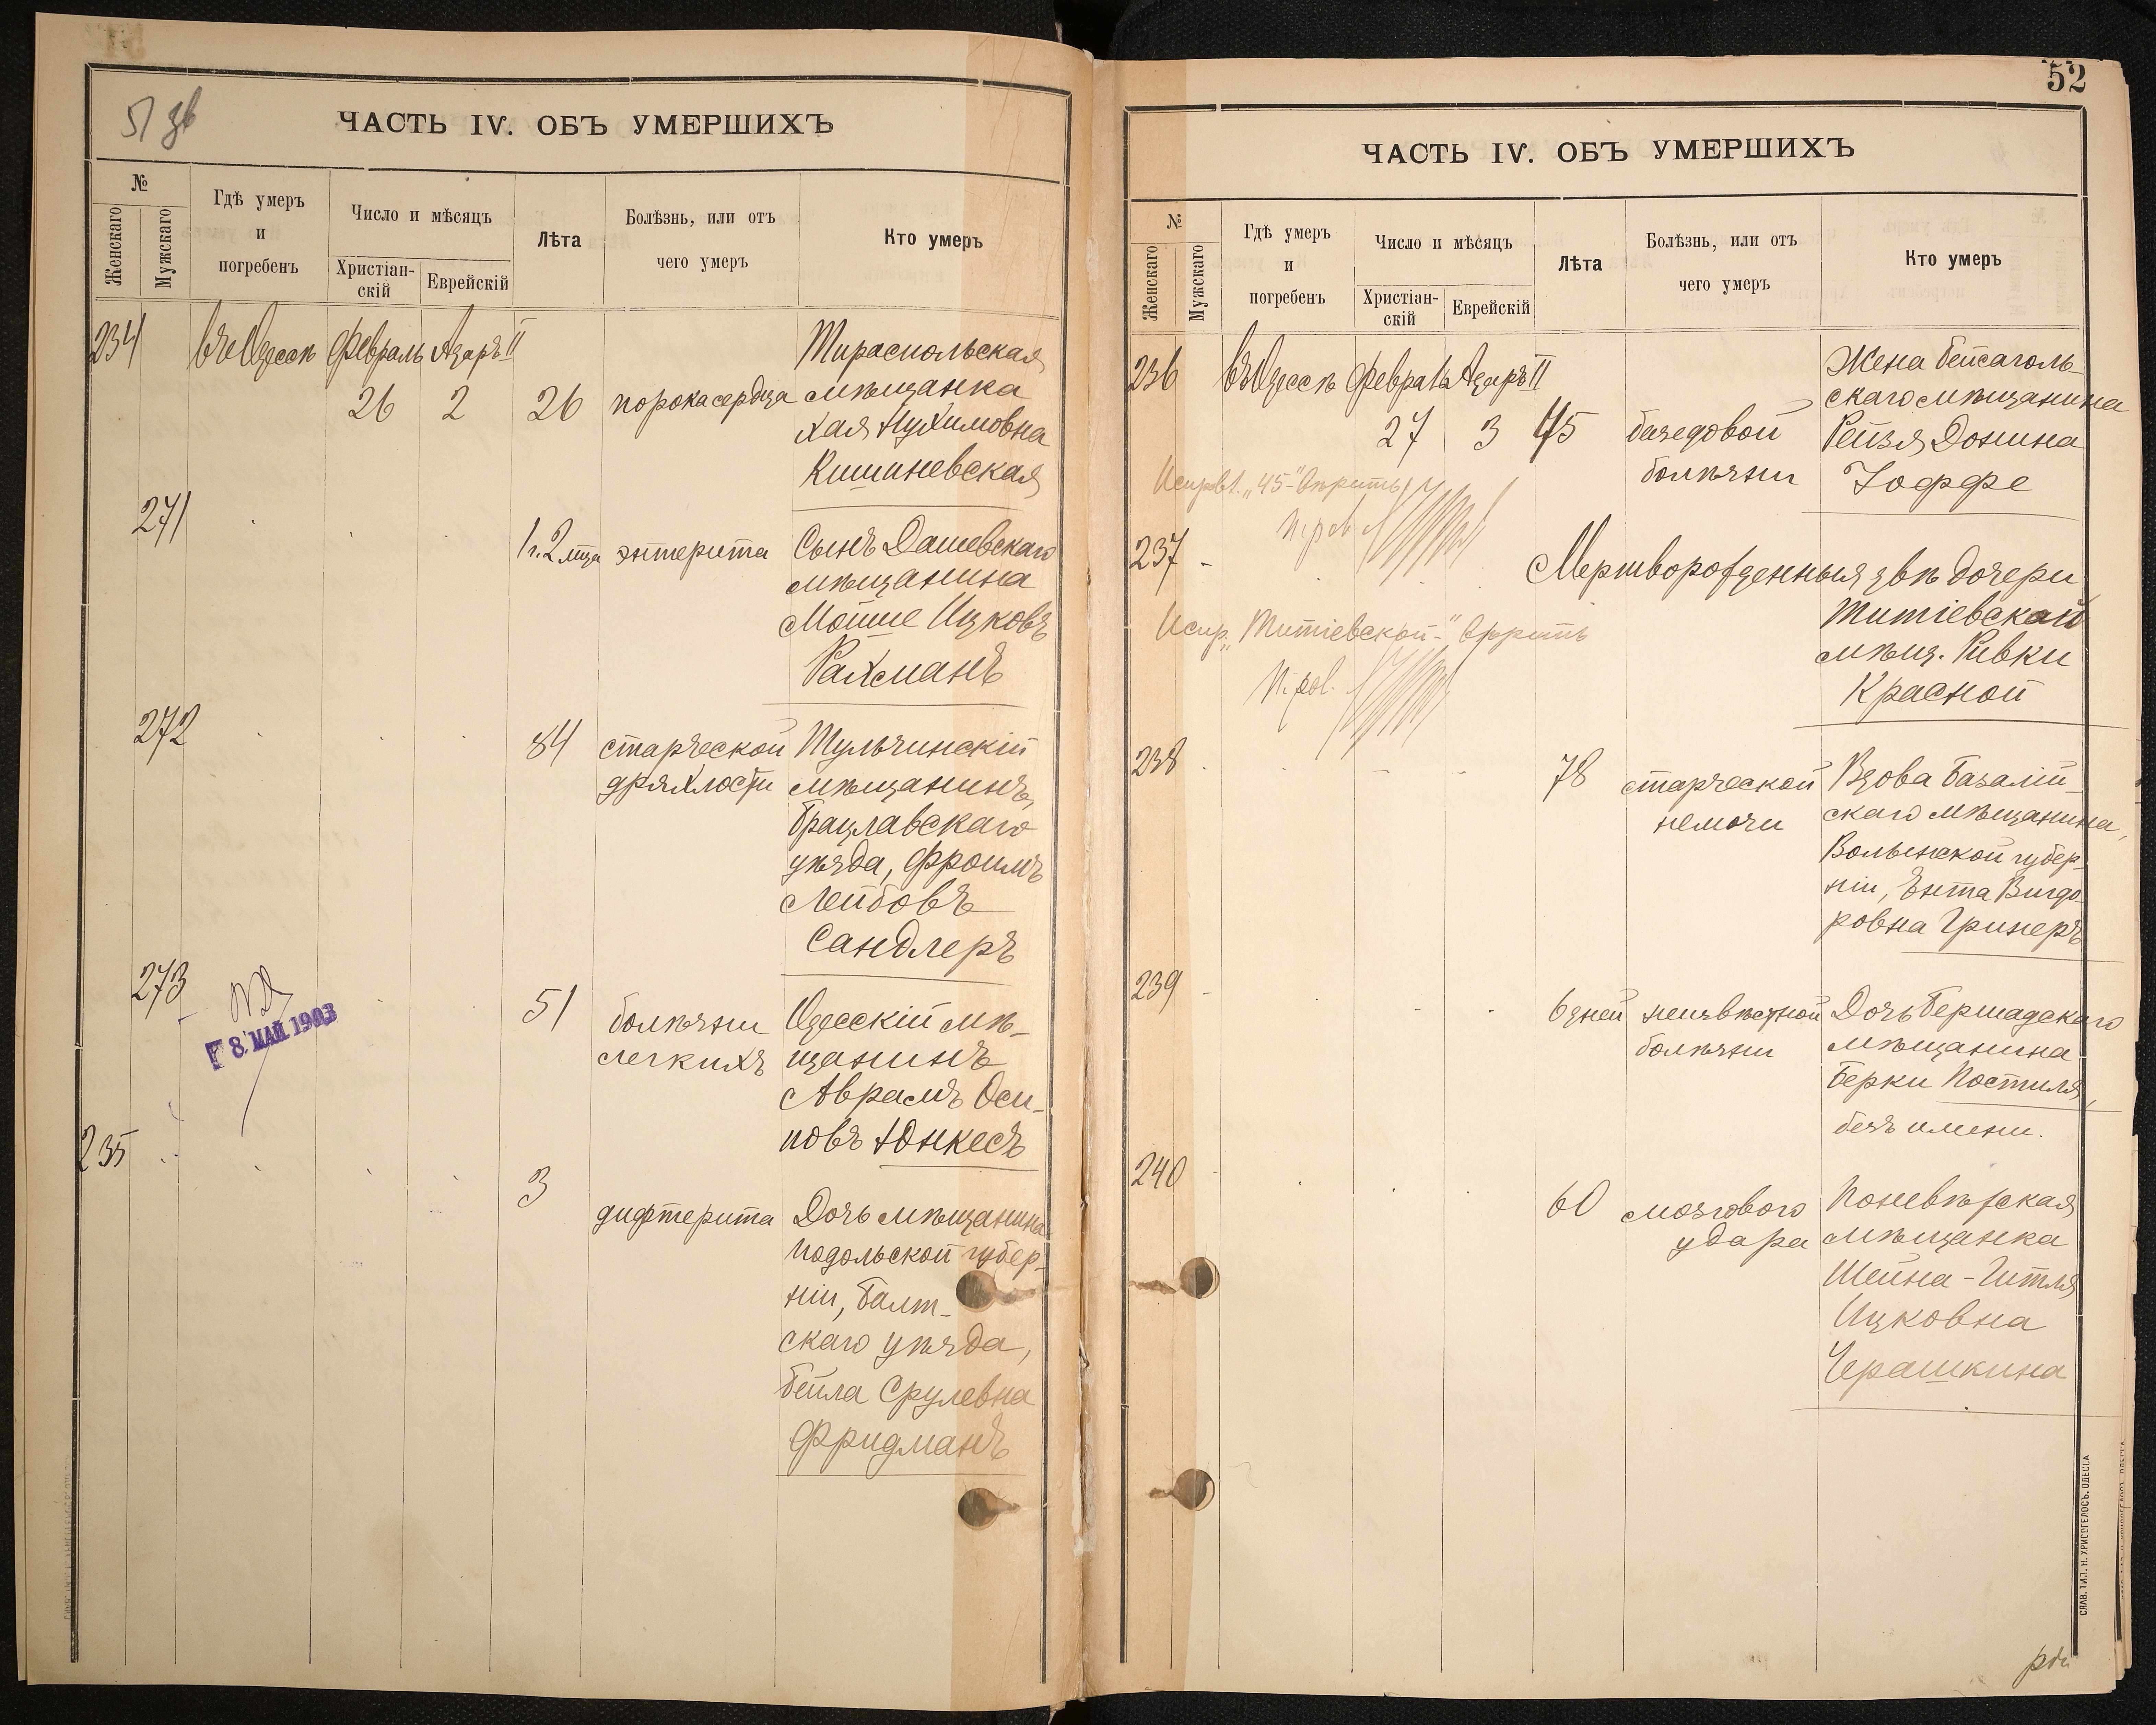 51 зв
ЧАСТЬ IV. ОБЪ УМЕРШИХЪ
№
Женскаго
Мужскаго
Гдѣ умеръ
и
погребенъ
Число и мѣсяцъ
Христіан-
скій
Еврейскій
Лѣта
Болѣзнь, или отъ
чего умеръ
Кто умеръ
234 въ Одессѣ Февраль Адаръ II Тираспольская
26 2 26 порока сердца мѣщанка
Хая Нухимовна
Кишиневская
271
1 г. 2 мца энтерита Сынъ Дашевскаго
мѣщанина
Мошие Ицковъ
Рахманъ
272
84 старческой Тульчинскій
дряхлости мѣщанинъ,
Брацлавскаго
уѣзда, Фроимъ
Лейбовъ
Сандлеръ
273
8 МАЙ 1903
51 болѣзни Одесскій мѣ-
легкихъ щанинъ
Аврамъ Оси-
повъ Юнкесъ
235
3
дифтерита Дочь мѣщанина
Подольской губер-
ніи, Балт-
скаго уѣзда,
Бейла Срулевна
Фридманъ
52
ЧАСТЬ IV. ОБЪ УМЕРШИХЪ
№
Женскаго
Мужскаго
Гдѣ умеръ
и
погребенъ
Число и мѣсяцъ
Христіан-
скій
Еврейскій
Лѣта
Болѣзнь, или отъ
чего умеръ
Кто умеръ
236 въ Одессѣ Февраль Адаръ II Жена Бейсаголь-
скаго мѣщанина
27 3 45 базедовой Рейзя Донина
болѣзни Іоффе
Исправл. „45-" вѣрить
237 Мертворожденныя двѣ дочери
Титіевской
Испр. „Титіевской-" вѣрить
мѣщ. Ривки
Красной
238
78 старческой Вдова Базалій-
немочи скаго мѣщанина,
Волынской губер-
ніи, Ента Вигдо-
ровна Гринеръ
239
6 дней неизвѣстной Дочь Бершадскаго
болѣзни мѣщанина
Берки Постиля,
безъ имени.
240
60 мозгового Поневѣжская
удара мѣщанка
Шейна-Гитля
Ицковна
Черашкина
СЛАВ. ТИП. Н. ХРИСОГЕЛОСЪ. ОДЕССА